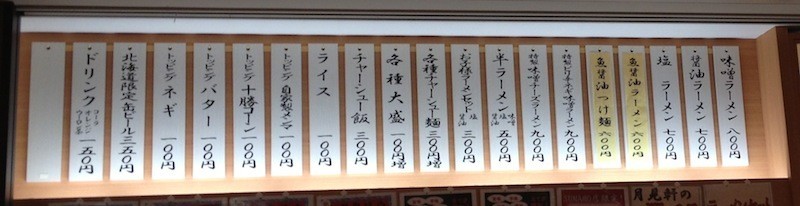 味噌ラーメン 八〇〇円
醤油ラーメン 七〇〇円
塩 ラーメン 七〇〇円
魚醤油ラーメン 六〇〇円
魚醤油つけ麺 六〇〇円
特製ピリ辛ネギ味噌ラーメン 九〇〇円
特製味噌チーズラーメン 九〇〇円
半ラーメン 味噌 塩 醤油 五〇〇円
お子様ラーメンセット 塩 醤油 三〇〇円
各種チャーシュー麺 三〇〇円増
各種大盛 一〇〇円増
チャーシュー飯 三〇〇円
ライス 一〇〇円
トッピング 自家製メンマ 一〇〇円
トッピング 十勝コーン 一〇〇円
トッピング バター 一〇〇円
トッピング ネギ 一〇〇円
北海道限定缶ビール 三五〇円
ドリンク コーラ オレンジ ウーロン茶 一五〇円
月見軒の